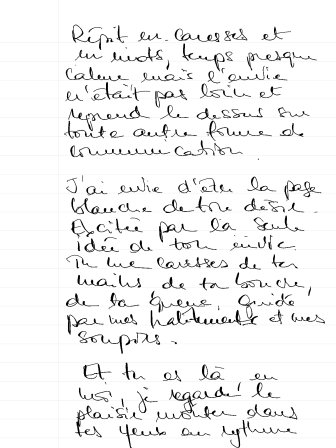 Répit en caresses et
en mots, temps presque
calme mais l'envie
n'était pas loin et
reprend le dessus sur
toute autre forme de
communication.
J'ai envie d'être la page
blanche de ton désir.
Excitée par la seule
idée de ton envie.
Tu me caresses de tes
mains de ta bouche,
de ta queue, guidé
par mes halètements et mes
soupirs.
Et tu es là en
moi, je regarde le
plaisir monter dans
tes yeux au rythme